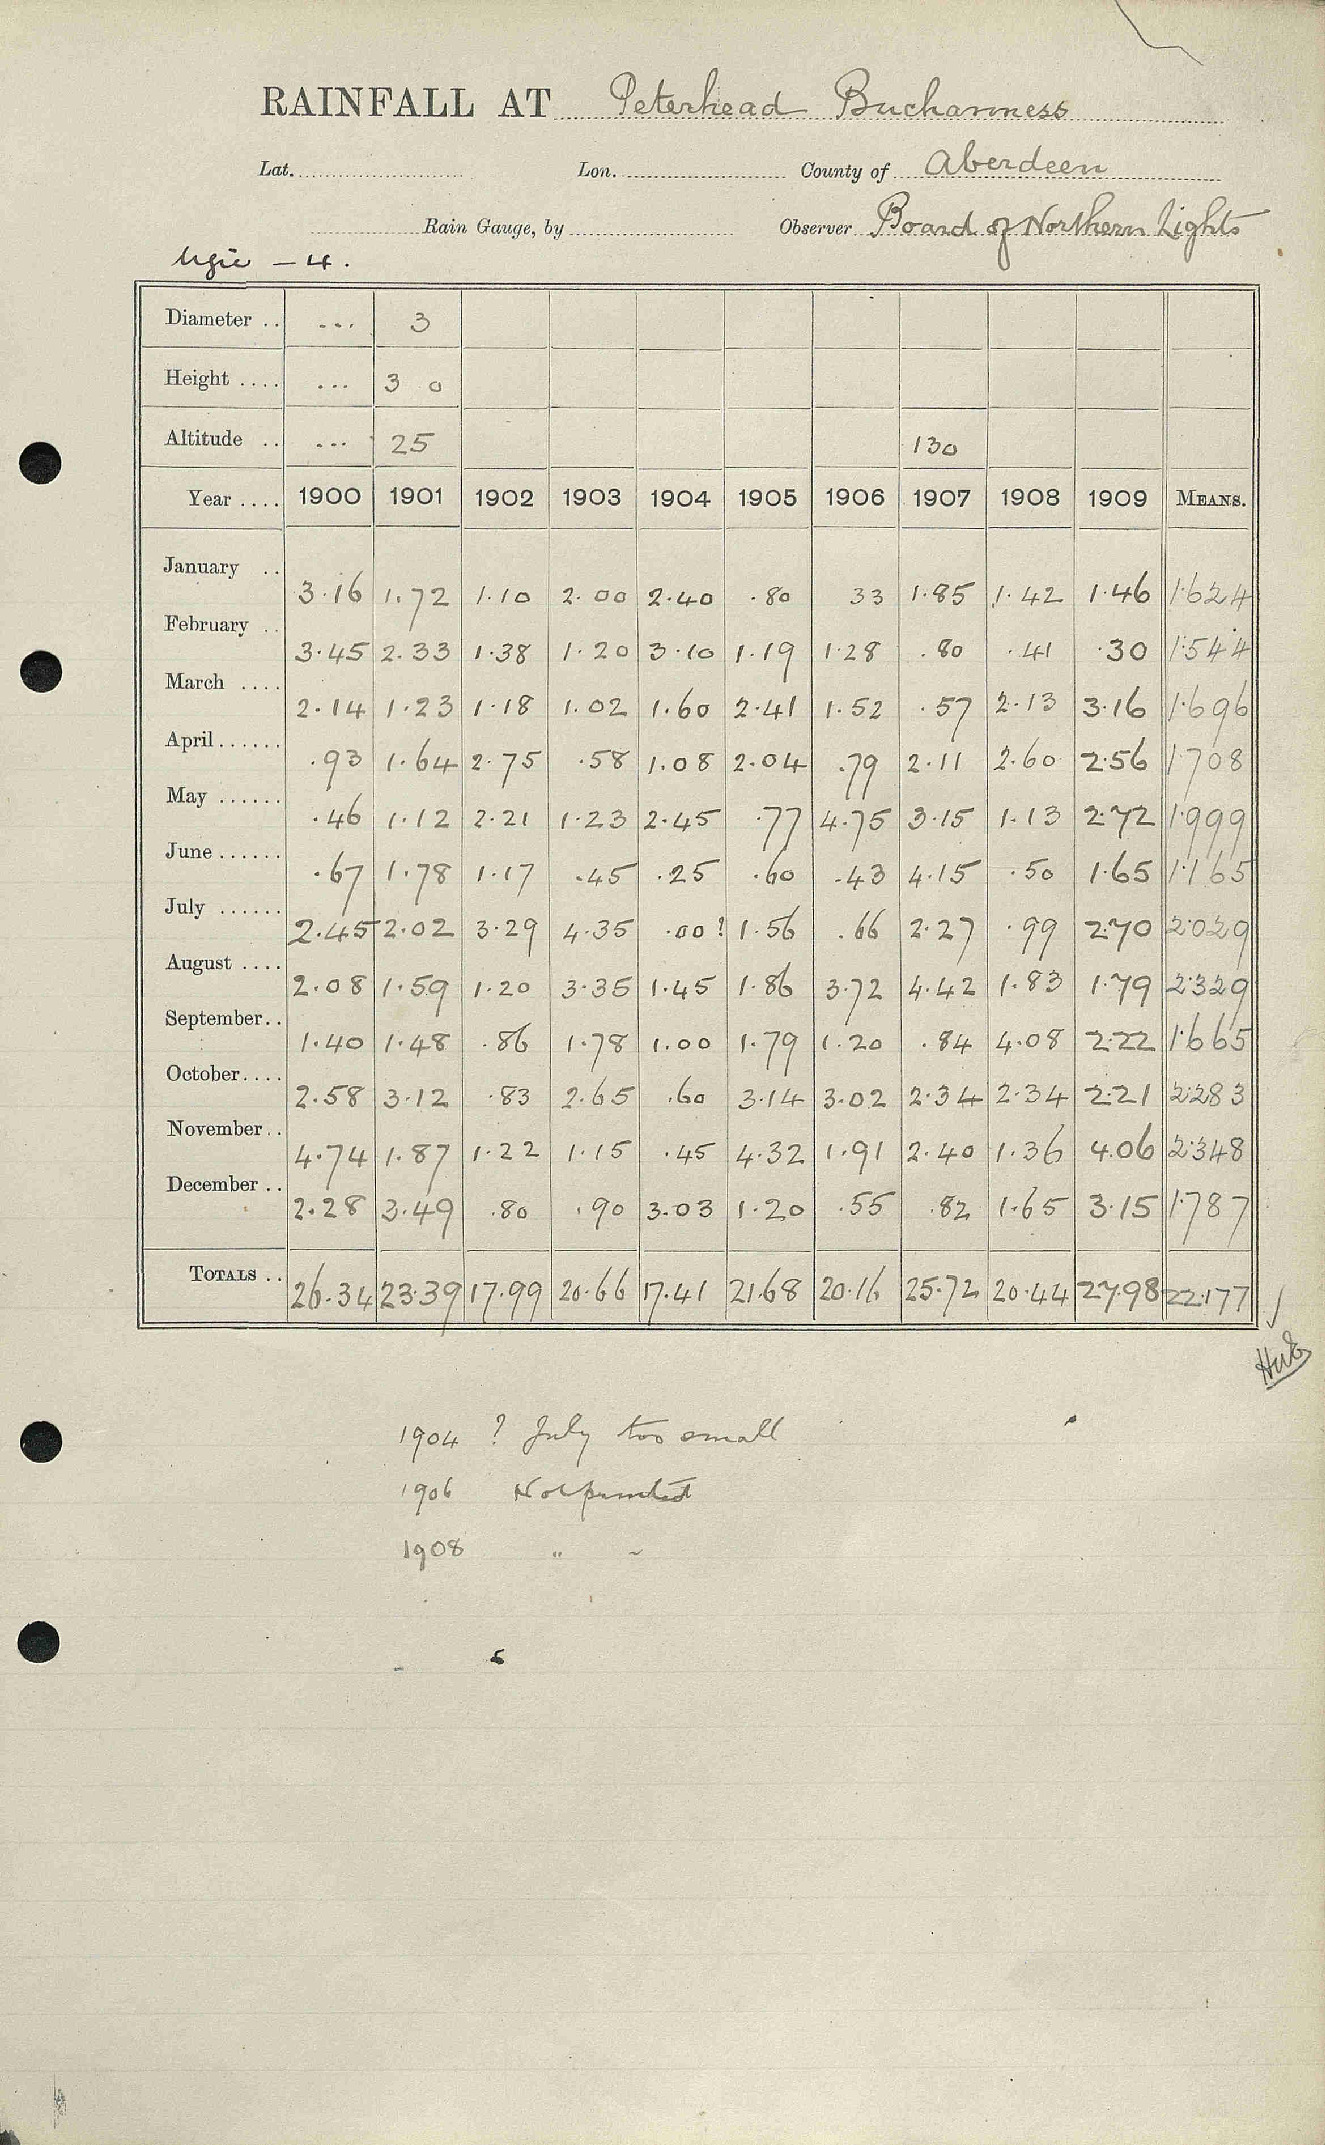 RAINFALL AT Peterhead Buchanness
Lat. Lon. County of Aberdeen
Rain Gauge, by Observer Board of Northern Lights
Ugie - 4.
Diameter .. ... 3
Height .... ... 3 0
Altitude .. ... 25 130
Year .... 1900 1901 1902 1903 1904 1905 1906 1907 1908 1909 MEANS.
January .. 3.16 1.72 1.10 2.00 2.40 .80 33 1.85 1.42 1.46 1.624
February .. 3.45 2.33 1.38 1.20 3.10 1.19 1.28 .80 .41 .30 1.544
March .... 2.14 1.23 1.18 1.02 1.60 2.41 1.52 .57 2.13 3.16 1.696
April...... .93 1.64 2.75 .58 1.08 2.04 .79 2.11 2.60 2.56 1.708
May ...... .46 1.12 2.21 1.23 2.45 .77 4.75 3.15 1.13 2.72 1.999
June...... .67 1.78 1.17 .45 .25 .60 .43 4.15 .50 1.65 1.165
July ...... 2.45 2.02 3.29 4.35 .00? 1.56 .66 2.27 .99 2.70 2.029
August .... 2.08 1.59 1.20 3.35 1.45 1.86 3.72 4.42 1.83 1.79 2.329
September.. 1.40 1.48 .86 1.78 1.00 1.79 1.20 .84 4.08 2.22 1.665
October.... 2.58 3.12 .83 2.65 .60 3.14 3.02 2.34 2.34 2.21 2.283
November.. 4.74 1.87 1.22 1.15 .45 4.32 1.91 2.40 1.36 4.06 2.348
December .. 2.28 3.49 .80 .90 3.03 1.20 .55 .82 1.65 3.15 1.787
TOTALS .. 26.34 23.39 17.99 20.66 17.41 21.68 20.16 25.72 20.44 27.98 22.177
1904 ? July too small
1906 Not printed
1908 " "